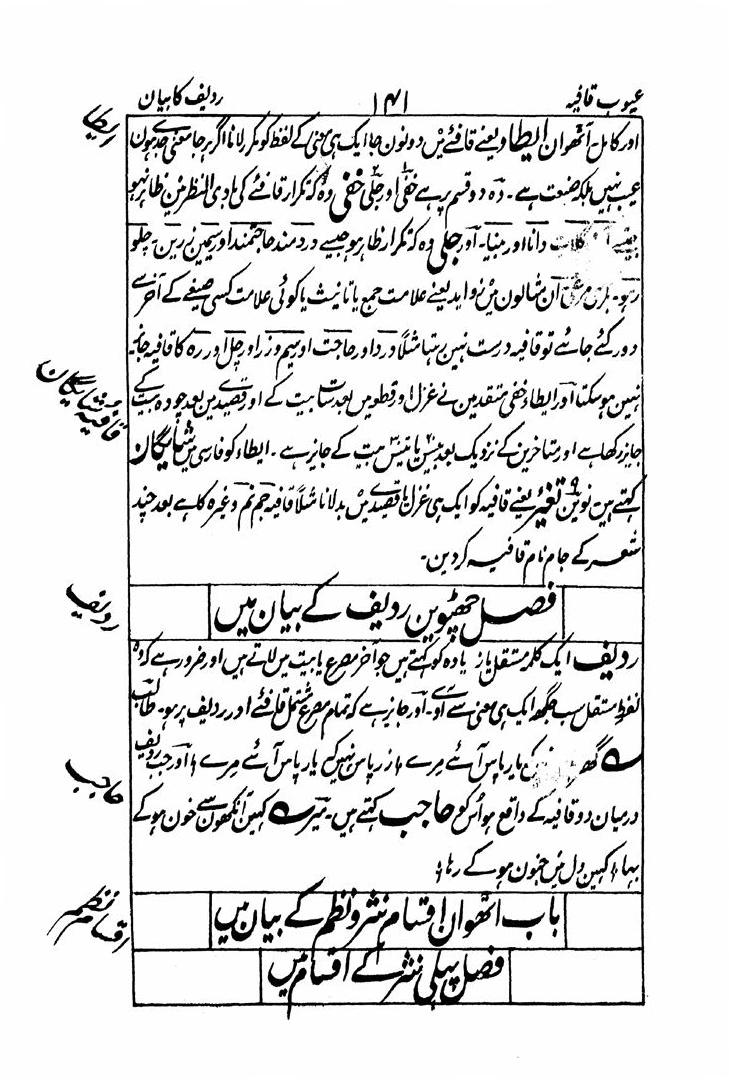 عیوب قافیہ ۱۴۱ ردیف کا بیان
ایطا
اور کامل۔ آٹھوان ایطاء یعنے قافئے مین دونون جا ایک ہی معنی کے لفظ کو مکرر لانا اگر ہر جا معنی جد ہون
عیب نہین بلکہ صنعت ہے۔ وہ دو قسم پر ہے خفی اور جلی خفی وہ کہ تکرار قافئے کی بادی النظر مین ظاہر نہو
جیسے دانا اور بینا۔ اور جلی وہ کہ تکرار ظاہر ہو جیسے دردمند حاجتمند اور سیمین زرین۔ چلو
رہو۔ ان مثالون مین زواید یعنے علامت جمع یا تانیث یا کوئی علامت کسی صیغے کے آخر سے
دور کئے جائے تو قافیہ درست نہین رہتا مثلاً درد اور حاجت اور سیم و زر اور چل اور رہ کا قافیہ جایز
قافیہ شایگان
نہین ہو سکتا اور ایطاء خفی متقدمین نے غزل اور قطعہ مین بعد سات بیت کے اور قصیدہ مین بعد چودہ بیت کے
جایز رکھا ہے اور متاخرین کے نزدیک بعد بیس یا تیس بیت کے جایز ہے۔ ایطاء کو فارسی مین شایگان
کہتے ہین نوین تغیر یعنے قافیہ کو ایک ہی غزل یا قصیدے مین بدلانا مثلاً قافیہ جم نم وغیرہ کا ہے بعد چند
شعر کے جام نام قافیہ کر دین۔
ردیف
فصل چھٹوین ردیف کے بیان مین
ردیف ایک کلمہ مستقل یا زیادہ کو کہتے ہین جو آخر مصرع یا بیت مین لاتے ہین اور ضرور ہے کہ وہ
لفظ مستقل سب جگھ ایک ہی معنی سے آوے۔ اور جایز ہے کہ تمام مصرع مشتمل قافئے اور ردیف پر ہو۔ طالب
؎ گھر یار پاس آئے مرے ٭ زر پاس نہین کہ یار پاس آئے مرے ٭ اور جب ردیف
حاجب
درمیان دو قافیہ کے واقع ہو اُسکو حاجب کہتے ہین۔ میر ؎ کہین آنکھون سے خون ہو کے
بہا ٭ کہین دل مین جنون ہو کے رہا ٭
اقسام نظم
باب اٹھوان اقسام نثر و نظم کے بیان مین
فصل پہلی نثر کے اقسام مین